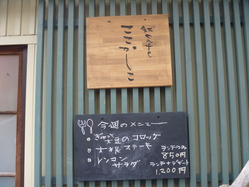 ここかしこ
今週のメニュー
大豆のコロッケ
大根ステーキ
レンコン
サラダ
ランチのみ
850円
ランチ+デザート
1,200円